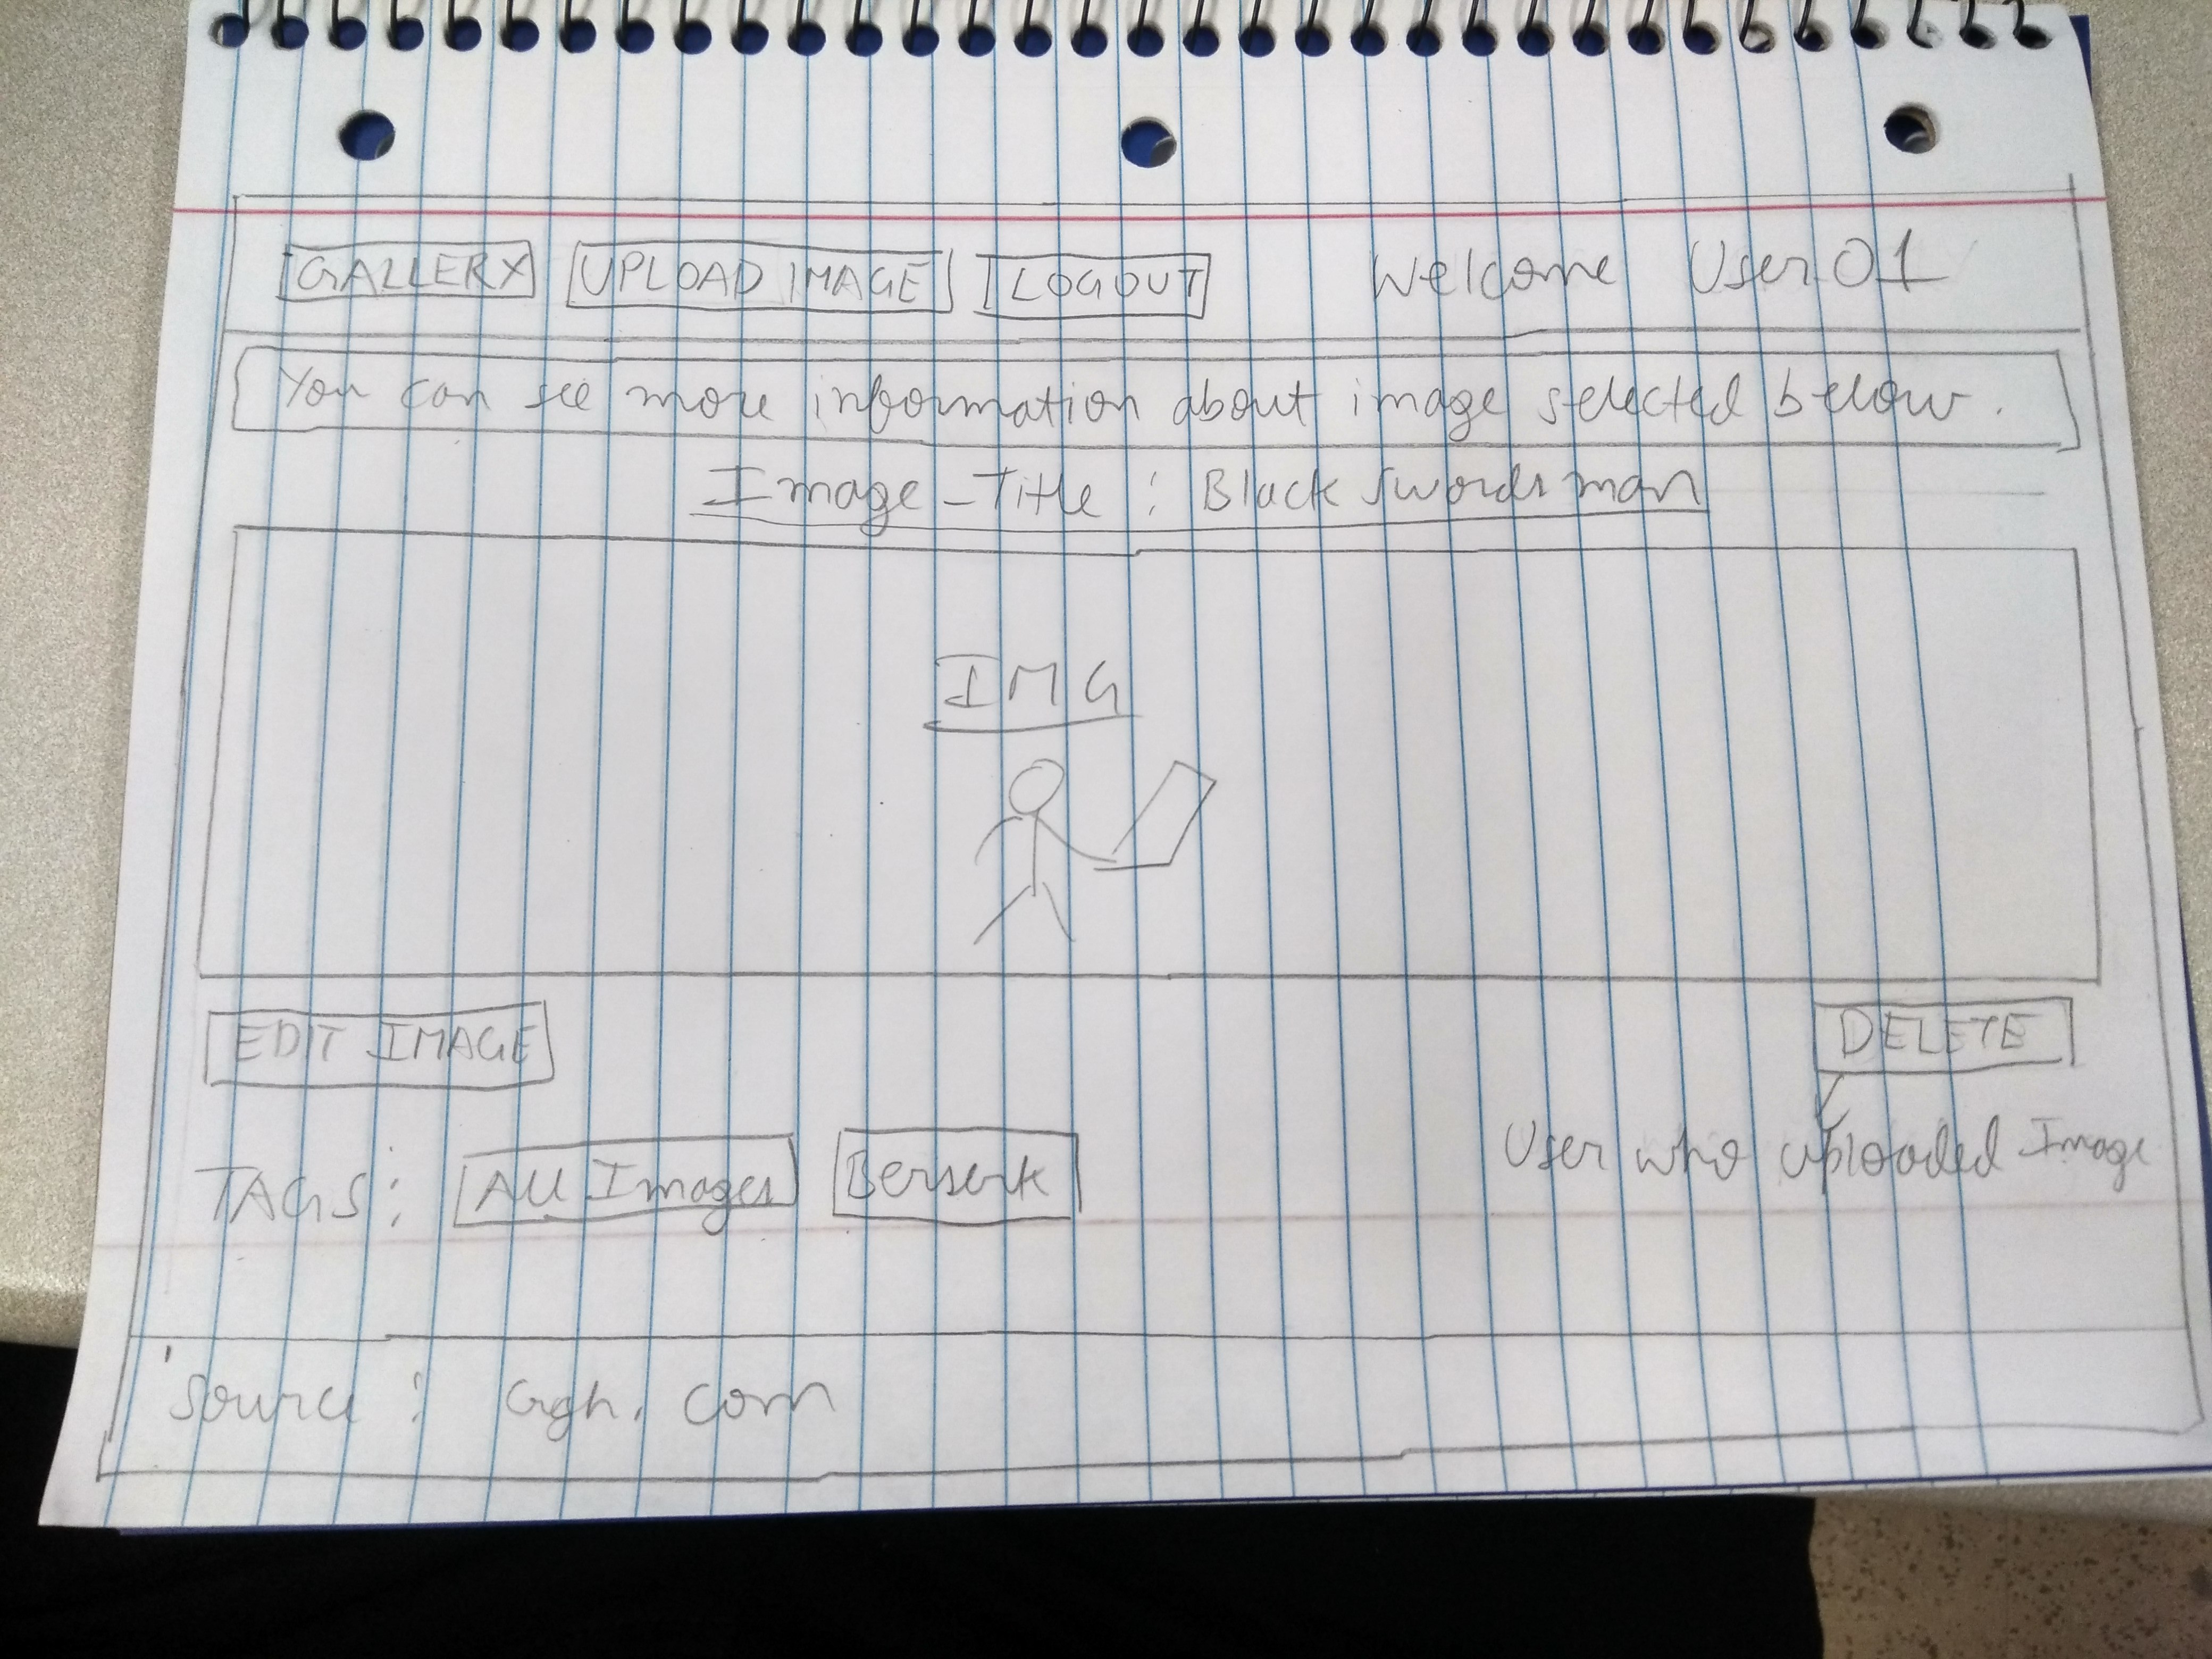 GALLERY UPLOAD IMAGE LOGOUT Welcome User01
You can see more information about image selected below.
Image-Title : Black Swordsman
IMG
EDIT IMAGE DELETE
User who uploaded Image
TAGS : All Images Berserk
Source : Ggh. com